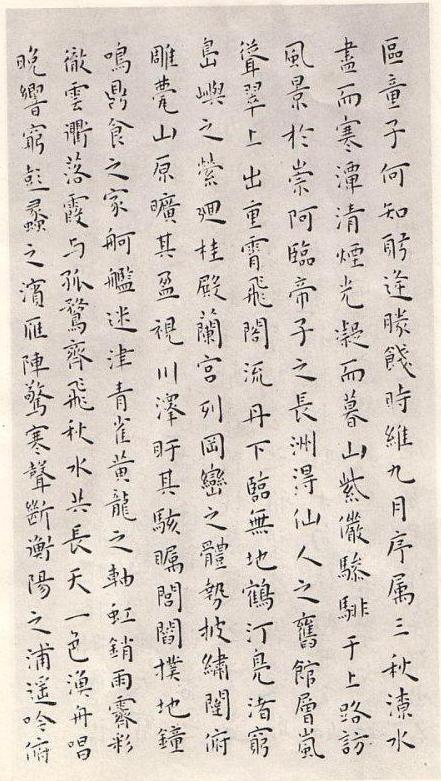 區童子何知躬逢勝餞時維九月序属三秋潦水
盡而寒潭清煙光凝而暮山紫儼驂騑于上路訪
風景於崇阿臨帝子之長洲淂仙人之舊館層嵐
聳翠上出重霄飛閣流丹下臨無地鶴汀鳧渚窮
島嶼之縈迴桂殿蘭宮列岡巒之體勢披繡闥俯
雕甍山原曠其盈視川澤盱其駭矚閭閻撲地鐘
鳴鼎食之家舸艦迷津青雀黃龍之軸虹銷雨霽彩
徹雲衢落霞与孤鶩齊飛秋水共長天一色漁舟唱
晚響窮彭蠡之濱雁陣驚寒聲斷衡陽之浦遥吟俯